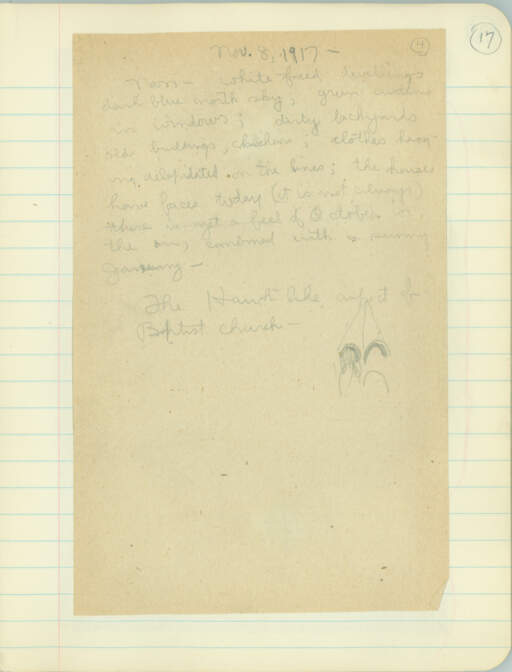 17
4
Nov. 8, 1917 —
Noon — white faced dwellings
dark blue north sky; green curtains
in windows; dirty backyards
old buildings, chickens, clothes hang-
ing dilapidated on the lines; the houses
have faces today (it is not always)
there is yet a feel of October in
the air, combined with a sunny
January —
The Hawk-like aspect of
Baptist church —